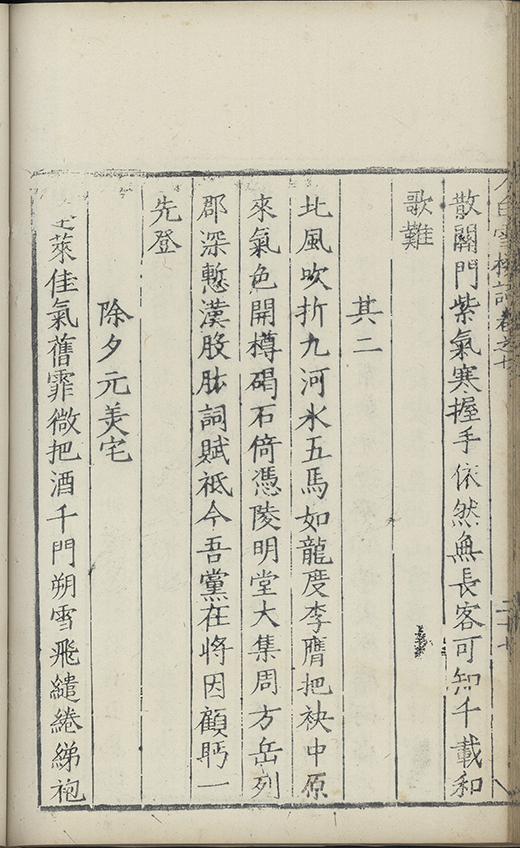 白雪樓詩卷之七
散關門紫氣寒握手依然無長客可知千載和
歌難
其二
北風吹折九河氷五馬如龍度李膺把袂中原
來氣色開樽碣石倚憑陵明堂大集周方岳列
郡深慙漢股肱詞賦祗今吾黨在將因顧眄一
先登
除夕元美宅
萊佳氣舊霏微把酒千門朔雪飛繾綣綈袍